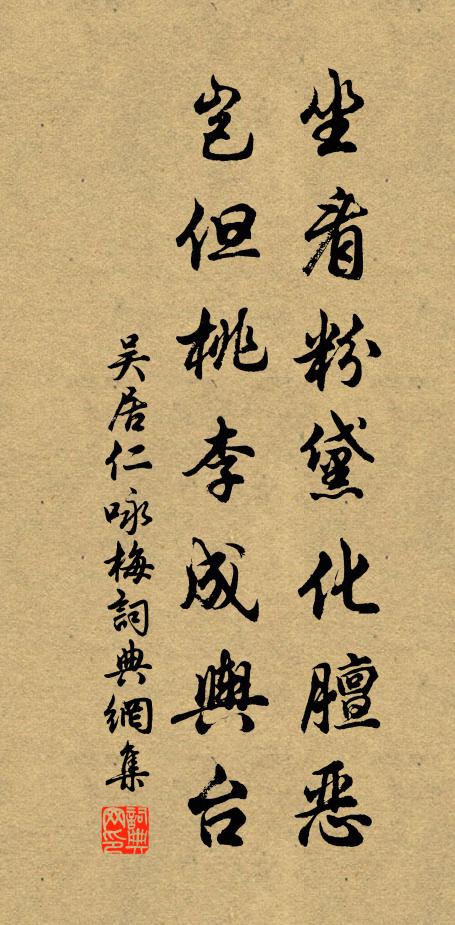 坐看粉黛化膻恶
岂但桃李成舆台
吴居仁咏梅詞典網集
詞典网印